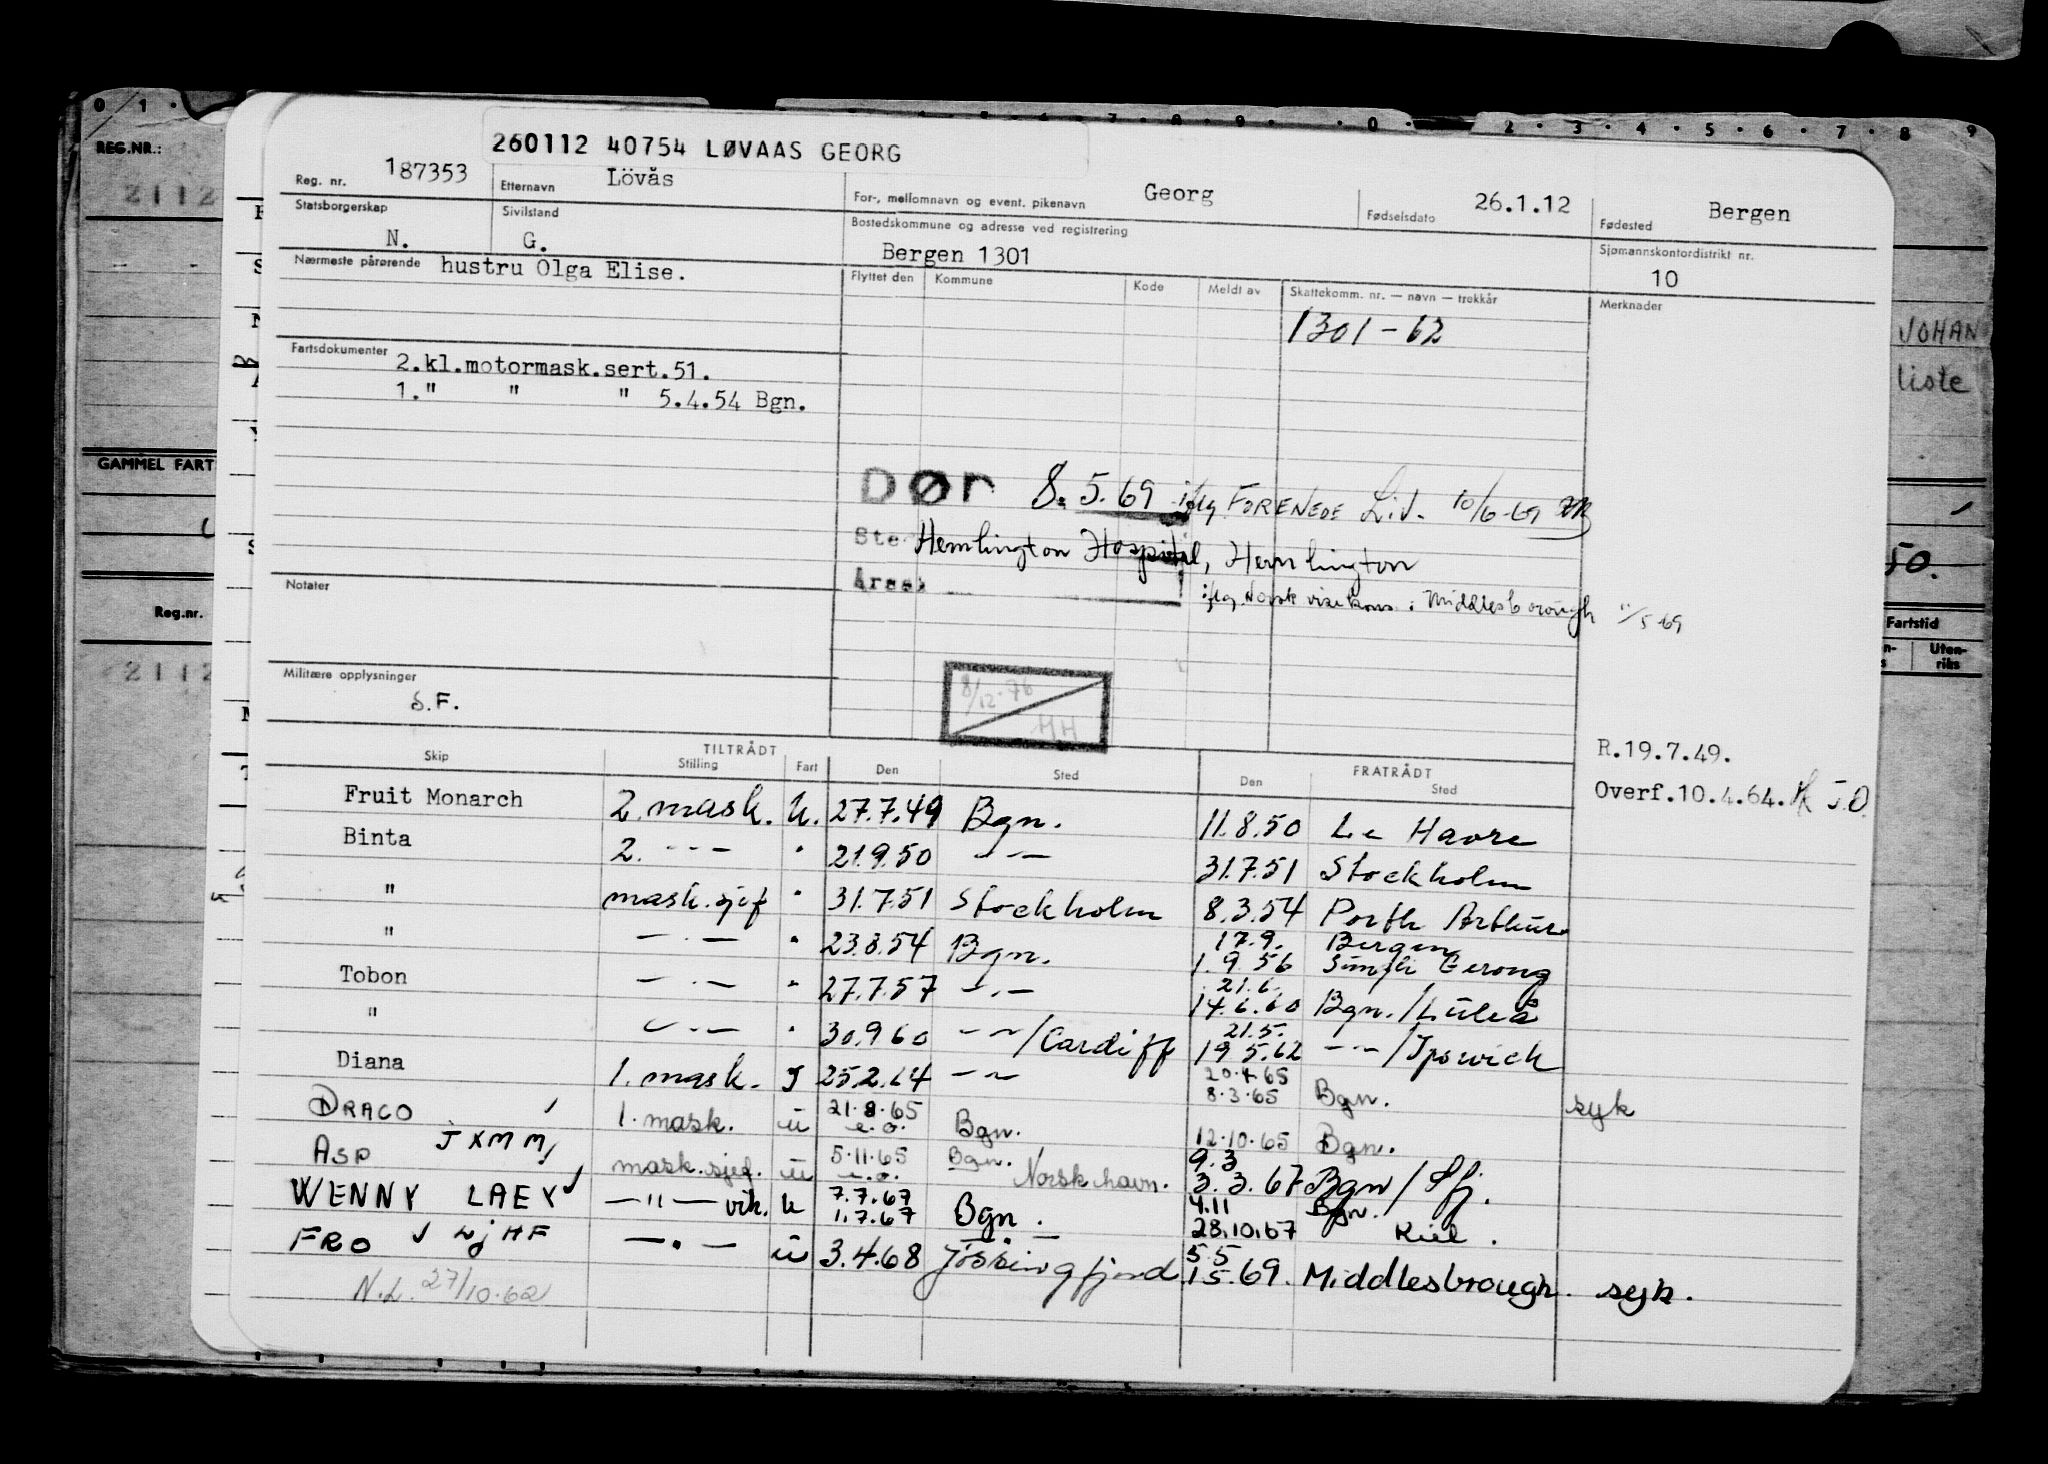 0 1 . 7 . 8 . 9 . . 0 . 2 . 3 . 4 . 5 . 6 . 7 . 8 9
REG.NR.:
2112
260112 40754 LØVAAS GEORG
Reg. nr. 187353 Etternavn Lövås For-, mellomnavn og event. pikenavn Georg Fødselsdato 26.1.12 Fødested Bergen
Statsborgerskap N. Sivilstand G. Bostedskommune og adresse ved registrering Bergen 1301 Sjømannskontordistrikt nr. 10
Nærmeste pårørende hustru Olga Elise. Flyttet den Kommune Kode Meldt av Skattekomm. nr. — navn — trekkår Merknader
1301-62
JOHAN
liste
Fartsdokumenter 2.kl.motormask.sert.51.
1." " " 5.4.54 Bgn.
GAMMEL FART
DØD 8.5.69 iflg FORENEDE Liv. 10/6-69
Hemlington Hospital, Hemlington
Årsak
iflg. Norsk visekons. i Middlesborough 11/5-69
50.
Notater
Reg.nr.
Fartstid
Uten-
riks
2112
Militære opplysninger S.F.
8/12-76
HH
R.19.7.49.
Overf.10.4.64. J.O.
Skip TILTRÅDT Stilling Fart Den Sted FRATRÅDT Den Sted
Fruit Monarch 2. mask. U. 27.7.49 Bgn. 11.8.50 Le Havre
Binta 2. -"- " 21.9.50 -"- 31.7.51 Stockholm
" mask.sjef " 31.7.51 Stockholm 8.3.54 Porth Arthur
17.9. Bergen
" -"- " 23.8.54 Bgn. 1.9.56 Gerong
21.6.
Tobon -"- " 27.7.57 -"- 14.6.60 Bgn./Luleå
21.5.
" -"- " 30.9.60 -"-/Cardiff 19.5.62 -"-/Ipswich
20.4.65
Diana 1. mask. I 25.2.64 -"- 8.3.65 Bgn. syk
DRACO 1. mask. U 21.8.65 e.o. Bgn. 12.10.65 Bgn.
JXMM
9.3
ASP mask.sjef. U 5.11.65 e.o. Bgn. Norsk havn. 3.3.67 Bgn/Sfj.
7.7.67 4.11 Bgn.
WENNY LAEY -"- vik. U 1.7.67 Bgn. 28.10.67 Kiel.
5.5
FRO LJHF -"- U 3.4.68 Jøssingfjord 1.5.69. Middlesbrough. syk.
N.L. 27/10-62